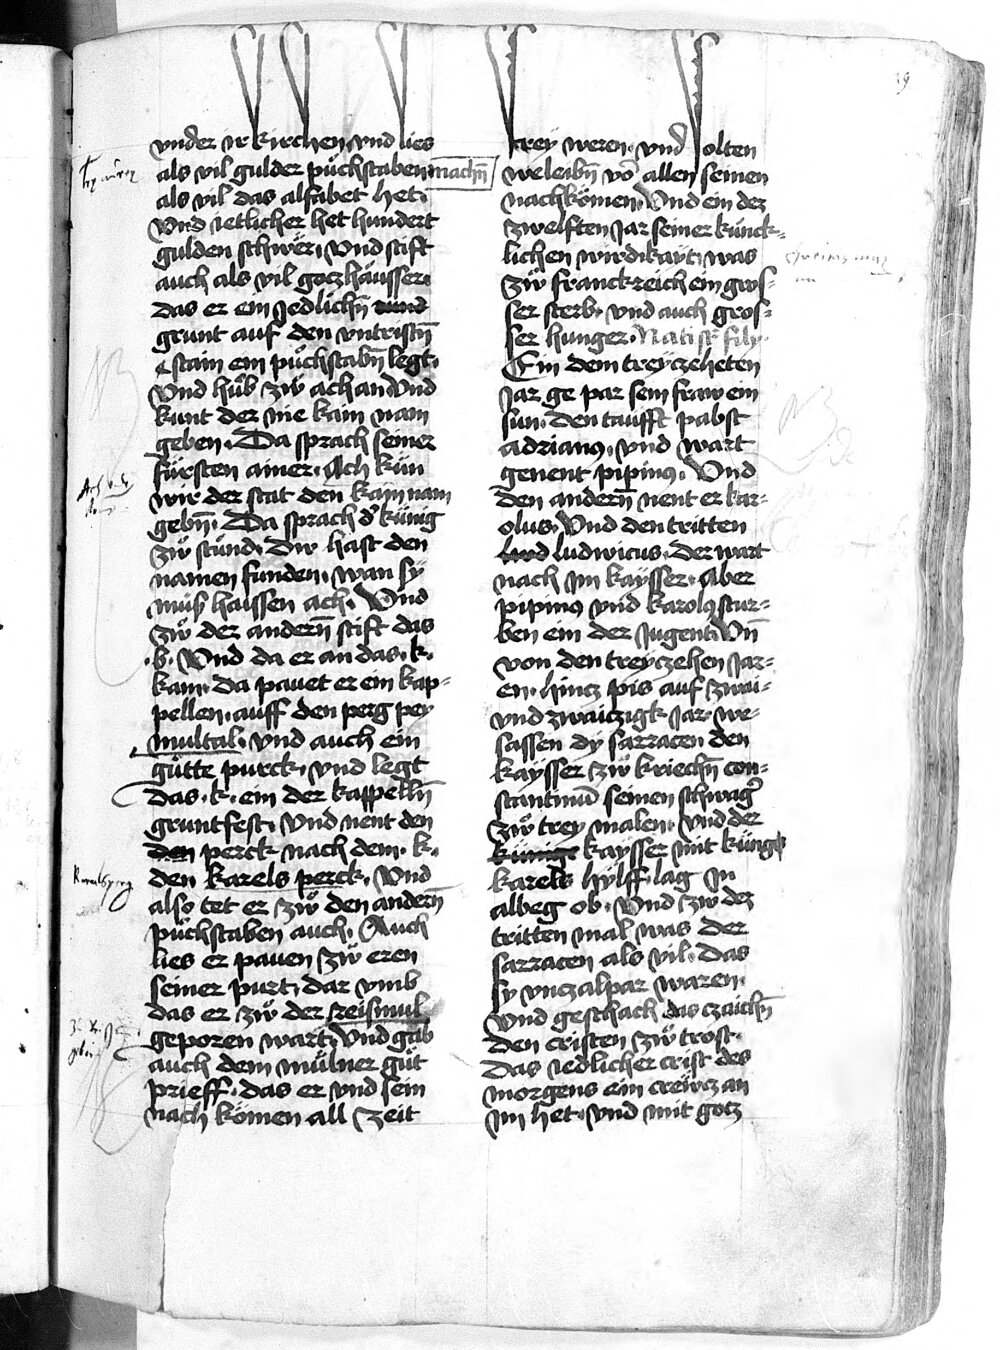 39
vnder ir kirchen vnd lies
als vil gulder pu̎chstaben machn̄
als vil das alfabet het.
Vnd ietlicher het hundert
gulden schwër. Vnd stift
auch als vil gotzhäusser.
das er ein iedlichn̄
grunt auf den vntristn̄
stain ein pu̎chstabn̄ legt.
Vnd hu̎b zw̎ ach an Vnd
kunt der nie kain nam
geben. Da sprach seiner
fürsten ainer. Ach kün
wir der stat den kain nam
gebn̄. Da sprach d' künig
zw̎ stund. Dw hast den
namen funden. wan sÿ
mu̎s haissen ach. Vnd
zw̎ der andern̄ stift das
.b. Vnd da er an das .k.
kam. da pauet er ein kap-
pellen. auff den perg pey
multal. vnd auch ein
gu̎tte purck. vnd legt
das .k. ein der kappelln̄
gruntfest. Vnd nent den
den perck nach dem .k.
den karels perck. Vnd
also tet er zw̎ den andern̄
pu̎chstaben auch. Auch
lies er pauen zw̎ eren
seiner purt. dar vmb
das er zw̎ der freismul
geporen wart. Vnd gab
auch dem mu̎lner gu̎t
prieff. das er vnd sein
nach kömen all zeit
trey weren. vnd solten
weleibn̄ vor allen seinen
nachkömen. Vnd ein dez
zwelften Jar seiner künck-
lichen wirdikäyt. was
zw̎ franckreich ein gros-
ser sterb. vnd auch gros-
ser hunger. Natiss filij.
Ein dem treyzeheten
Jar ge par sein fraw ein
sun. den taufft pabst
adrianus. vnd wart
genent pipinus. Vnd
den andern̄ nent er kar-
olus. Vnd den tritten
ludwicus. der wart
nach im kaÿsser. Aber
pipinus vnd karolus stur-
ben ein der Jugent. Vn̄
von den treyczehen Jar-
en. hincz pis auf zwai-
vnd zwaiczigk Jar. we-
sassen dÿ sarracen den
kaÿsser zw̎ kriechn̄ con-
stantinū seinen schwag'
zw̎ trey malen. Vnd der
kaÿsser mit künigs
karels hÿlff lag In
albeg ob. Vnd zw dez
tritten mal was der
sarracen als vil. das
sÿ vnczalpar waren.
Vnd geschach das czaichn̄
den cristen zw̎ trost.
Das iedlicher crist des
morgens ein crëwcz an
Im het. vnd mit gotz